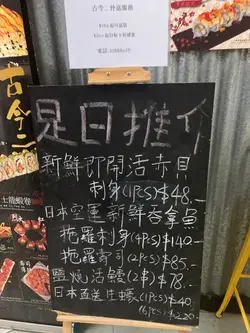 古今二外送服務
是日推介
新鮮即開活赤貝
刺身(1PCS)$48.-
日本空運新鮮吞拿魚
拖羅刺身(4PCS)$140.-
拖羅壽司(2PCS)$85.-
鹽燒活鰻(2串)$78.-
日本直送生蠔(1PCS)$40.
(6PCS)$220.-
古今二